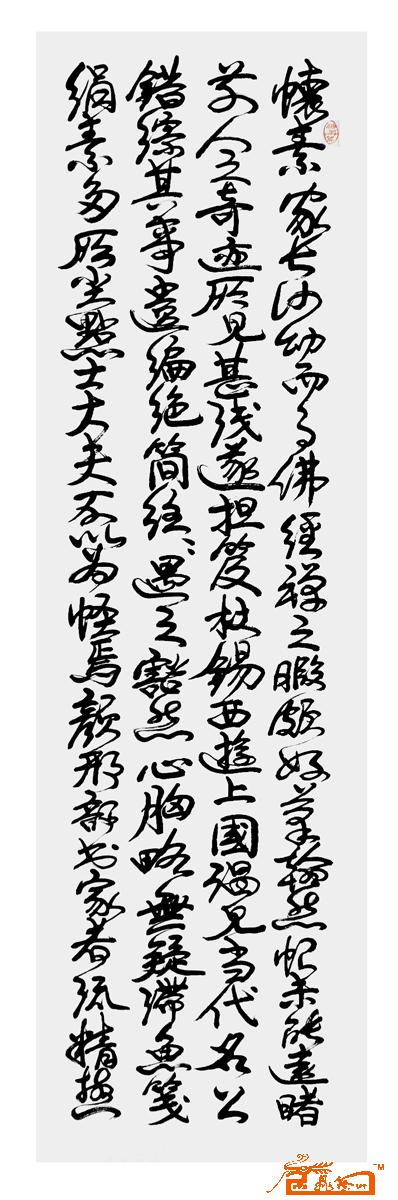 懷素家長沙幼而事佛經禪之暇頗好筆翰然恨未能遠睹
前人之奇迹所見甚浅遂担笈杖錫西遊上國謁見當代名公
錯綜其事遺編絶簡往〻遇之豁然心胸略無疑滯魚箋
絹素多所尘點士大夫不以為怪焉顏刑部書家者流精極